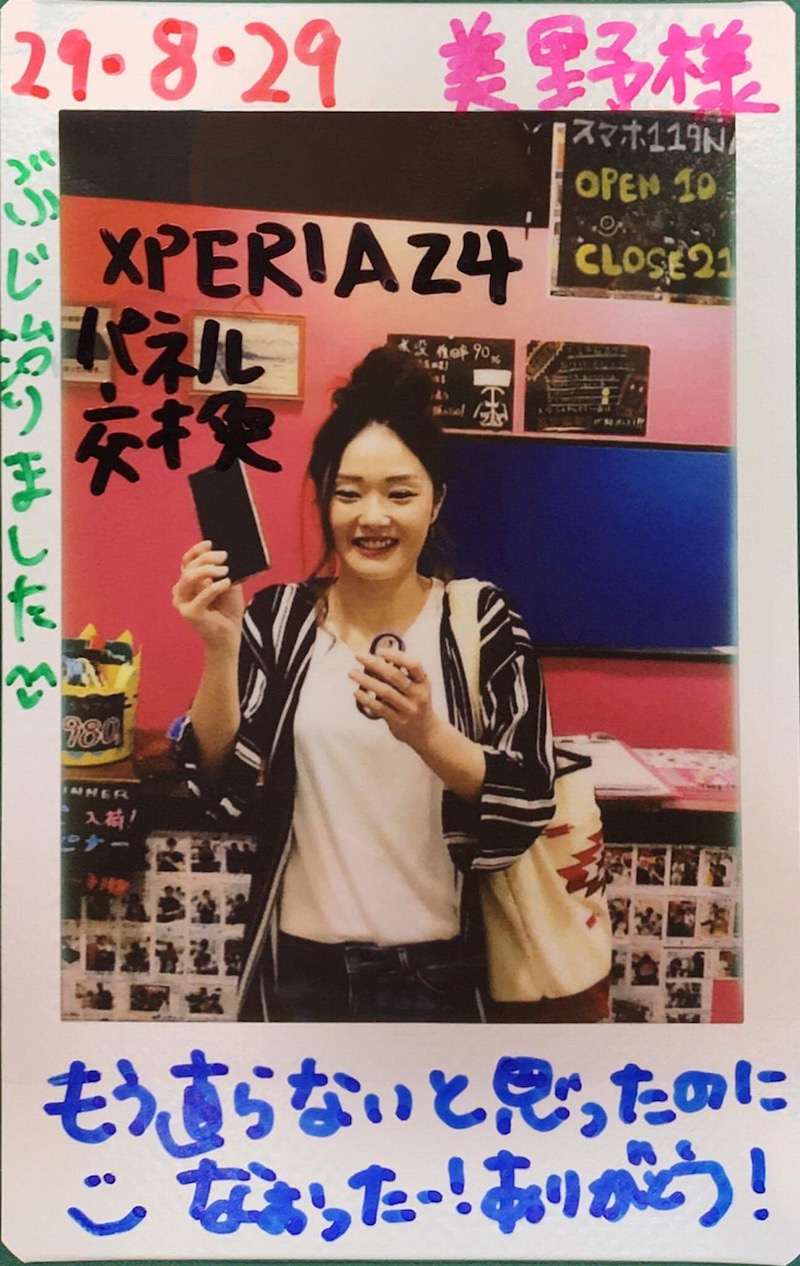 29.8.29
美野様
ぶじ治りました
XPERIA Z4
パネル
交換
スマホ119N
OPEN 10
CLOSE21
水没 復旧率90%
980
INNER
入荷!
もう直らないと思ったのに
なおったー!ありがとう!